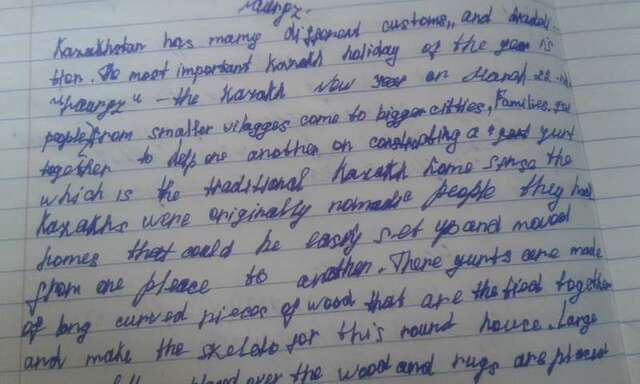 Naurpz.
Kazakhstan has many different customs, and tradoti
tion. The most important Kazakh holiday of the year is
"Naurpz" - the Kazakh New Year on March 22
people from smaller vilagges come to bigger citties, Families,
together to help one another on constructing a yurt
which is the traditional Kazakh home sinse the
Kazakhs were originally nomadic people they had
homes that could be easily set yp and moved
from one pleace to another. There yurts are made
of long curved pieces of wood that are the tied together
and make the skeleto for this round house. Large
over the wood and rugs are placed